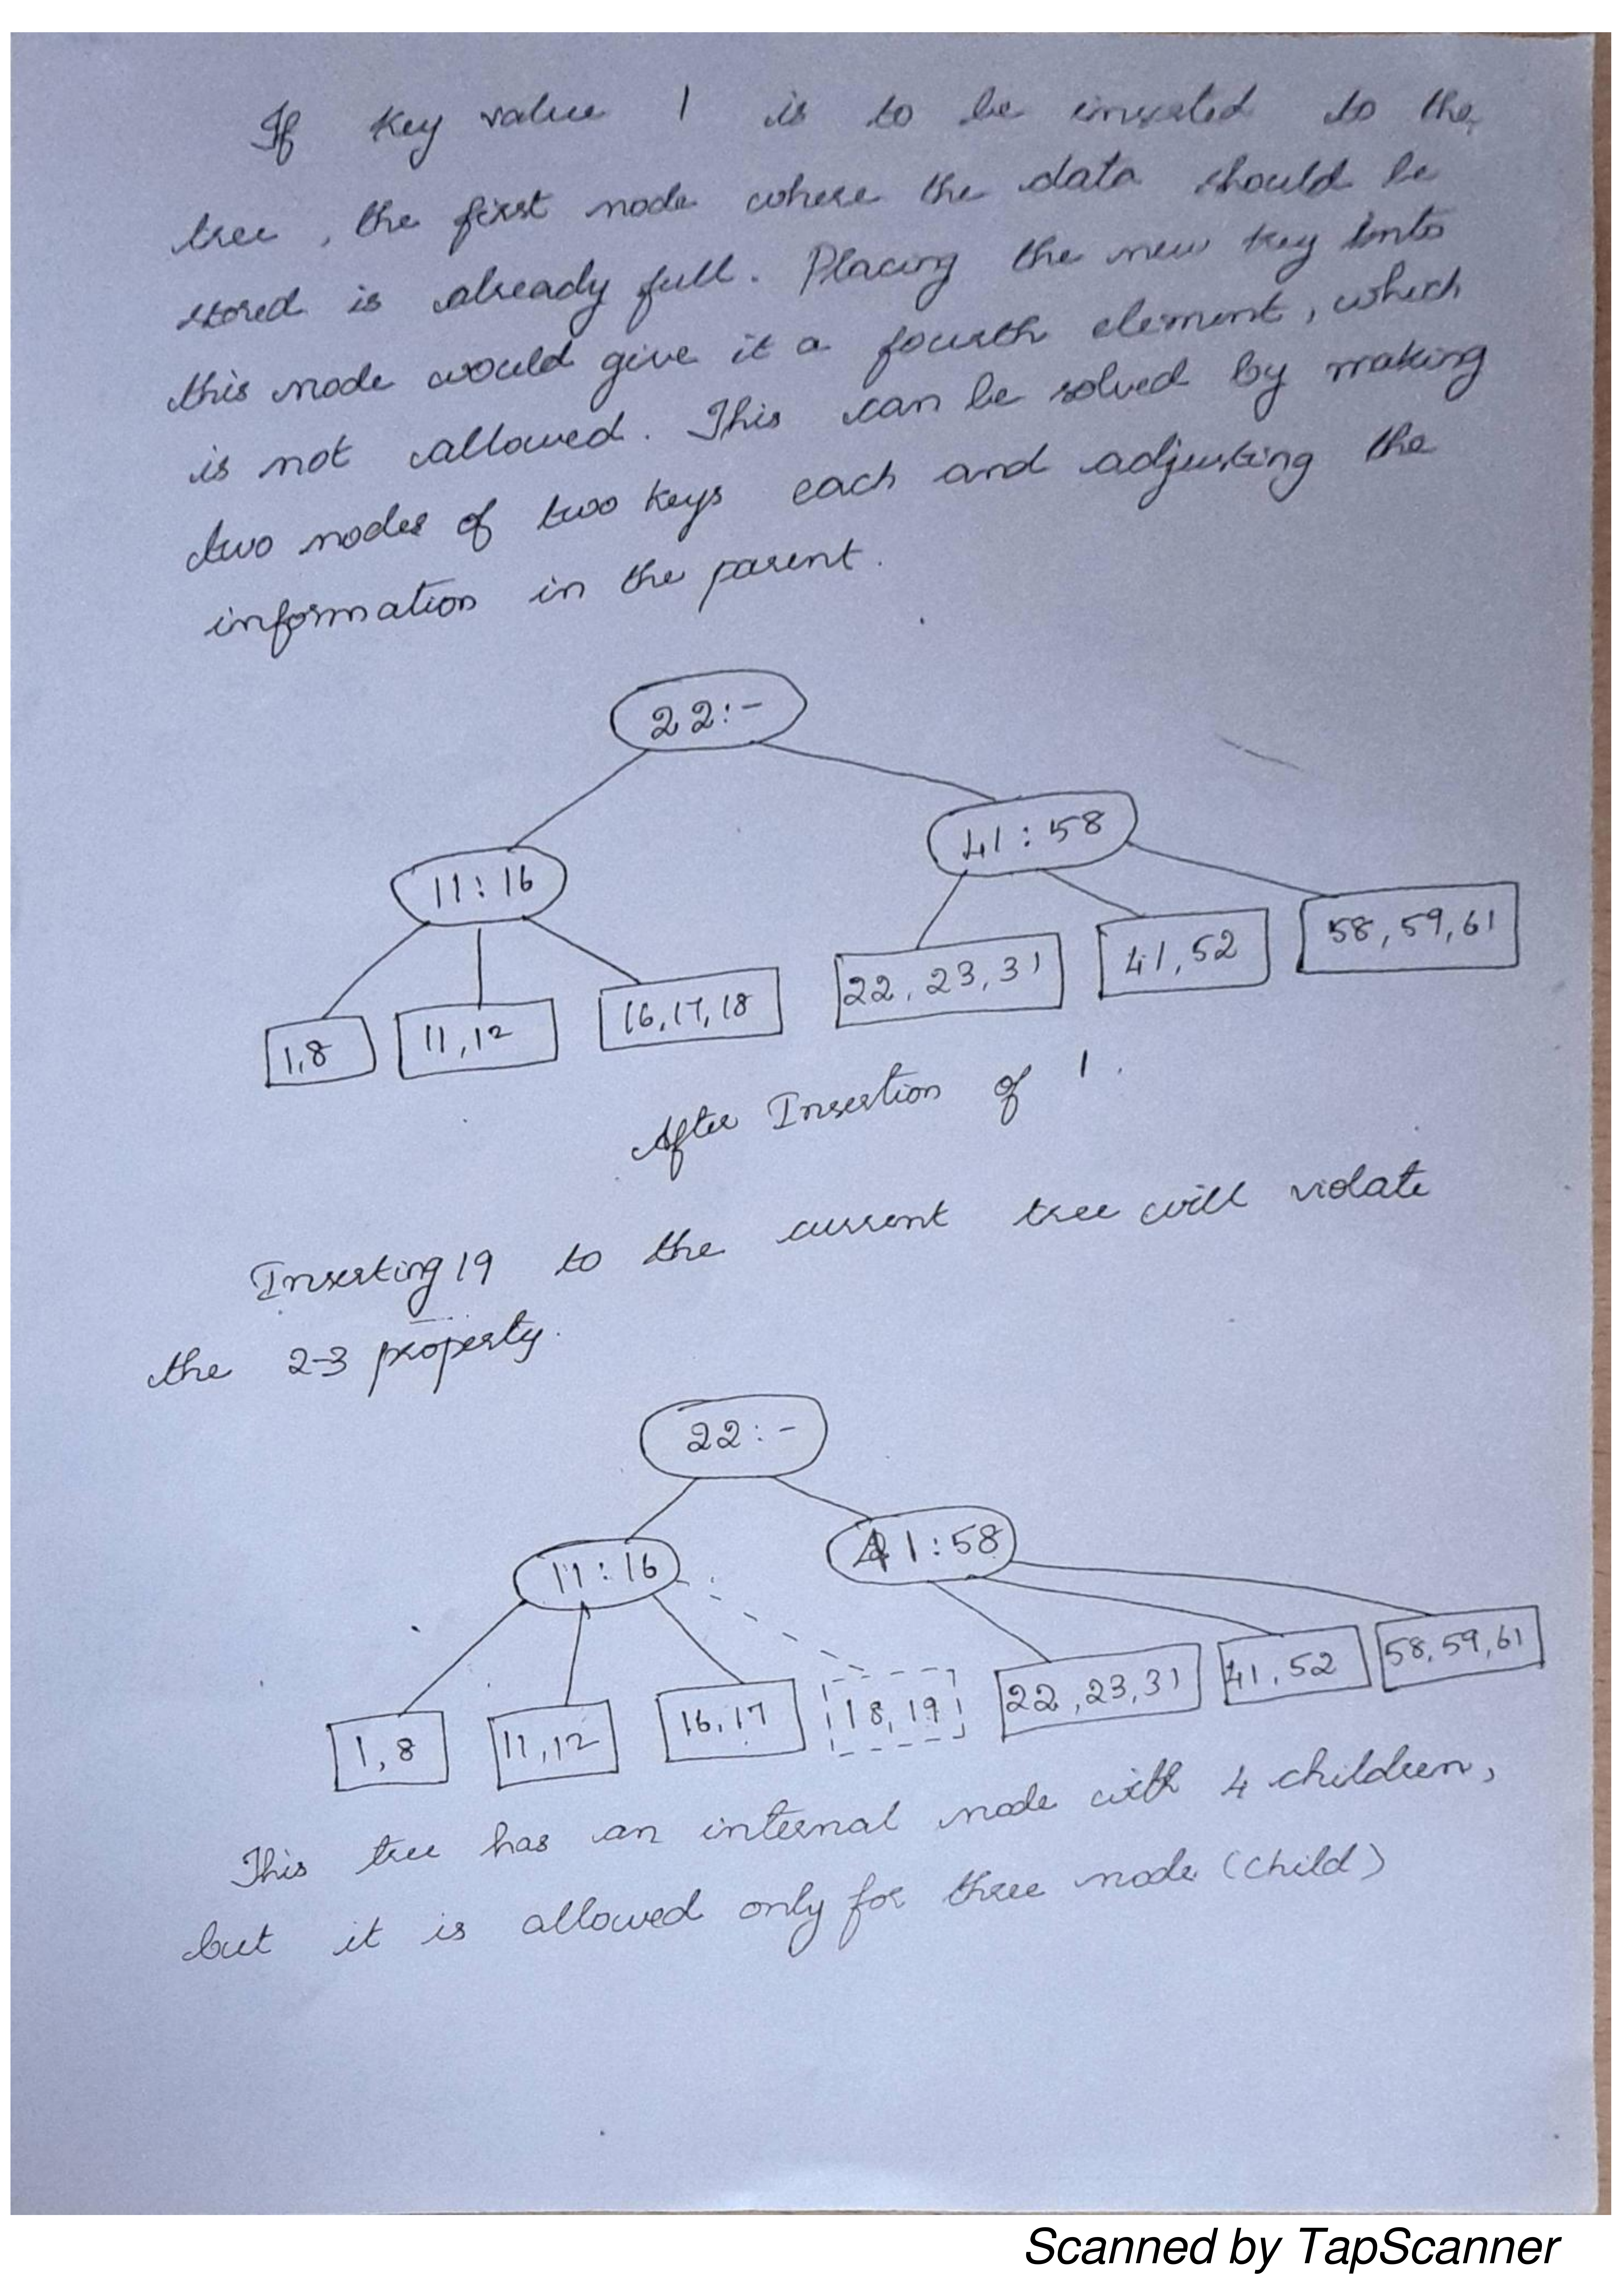 If key value 1 is to be inserted to the
tree, the first node where the data should be
stored is already full. Placing the new key into
this node would give it a fourth element, which
is not allowed. This can be solved by making
two nodes of two keys each and adjusting the
information in the parent.
22:-
11:16 41:58
1,8 11,12 16,17,18 22,23,31 41,52 58,59,61
After Insertion of 1.
Inserting 19 to the current tree will violate
the 2-3 property.
22:-
11:16 41:58
1,8 11,12 16,17 18,19 22,23,31 41,52 58,59,61
This tree has an internal node with 4 children,
but it is allowed only for three node (child)
Scanned by TapScanner